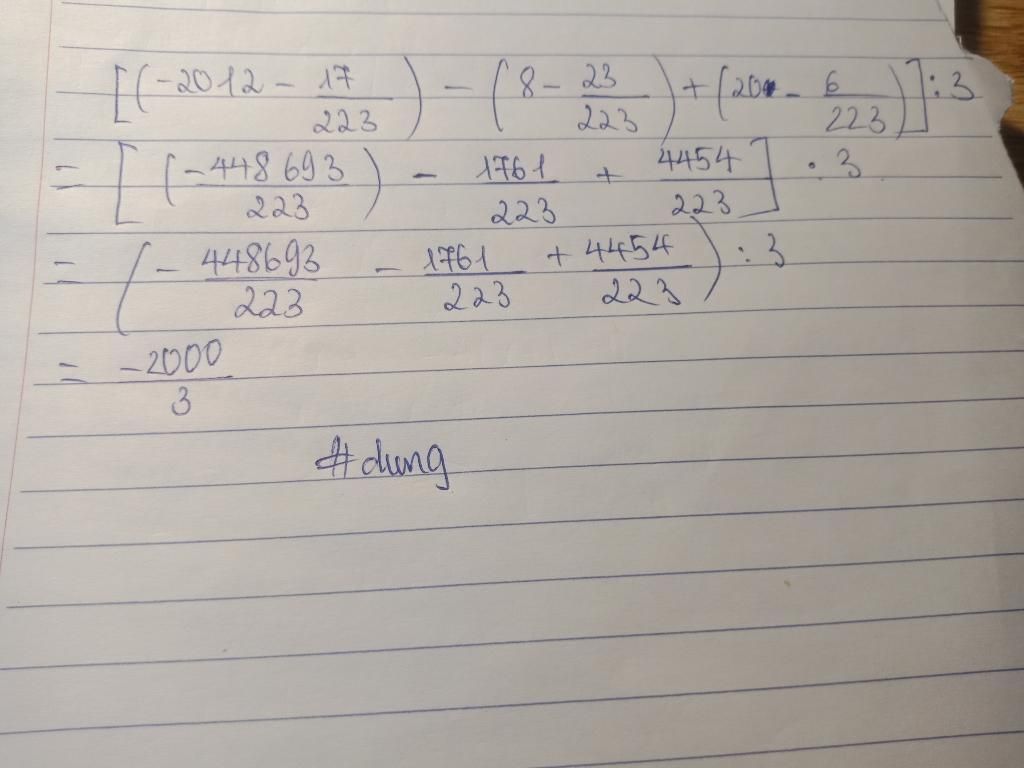 [(-2012 - 17/223) - (8 - 23/223) + (20 - 6/223)] : 3
= [(-448693/223) - 1761/223 + 4454/223] : 3
= (-448693/223 - 1761/223 + 4454/223) : 3
= -2000/3
#dung